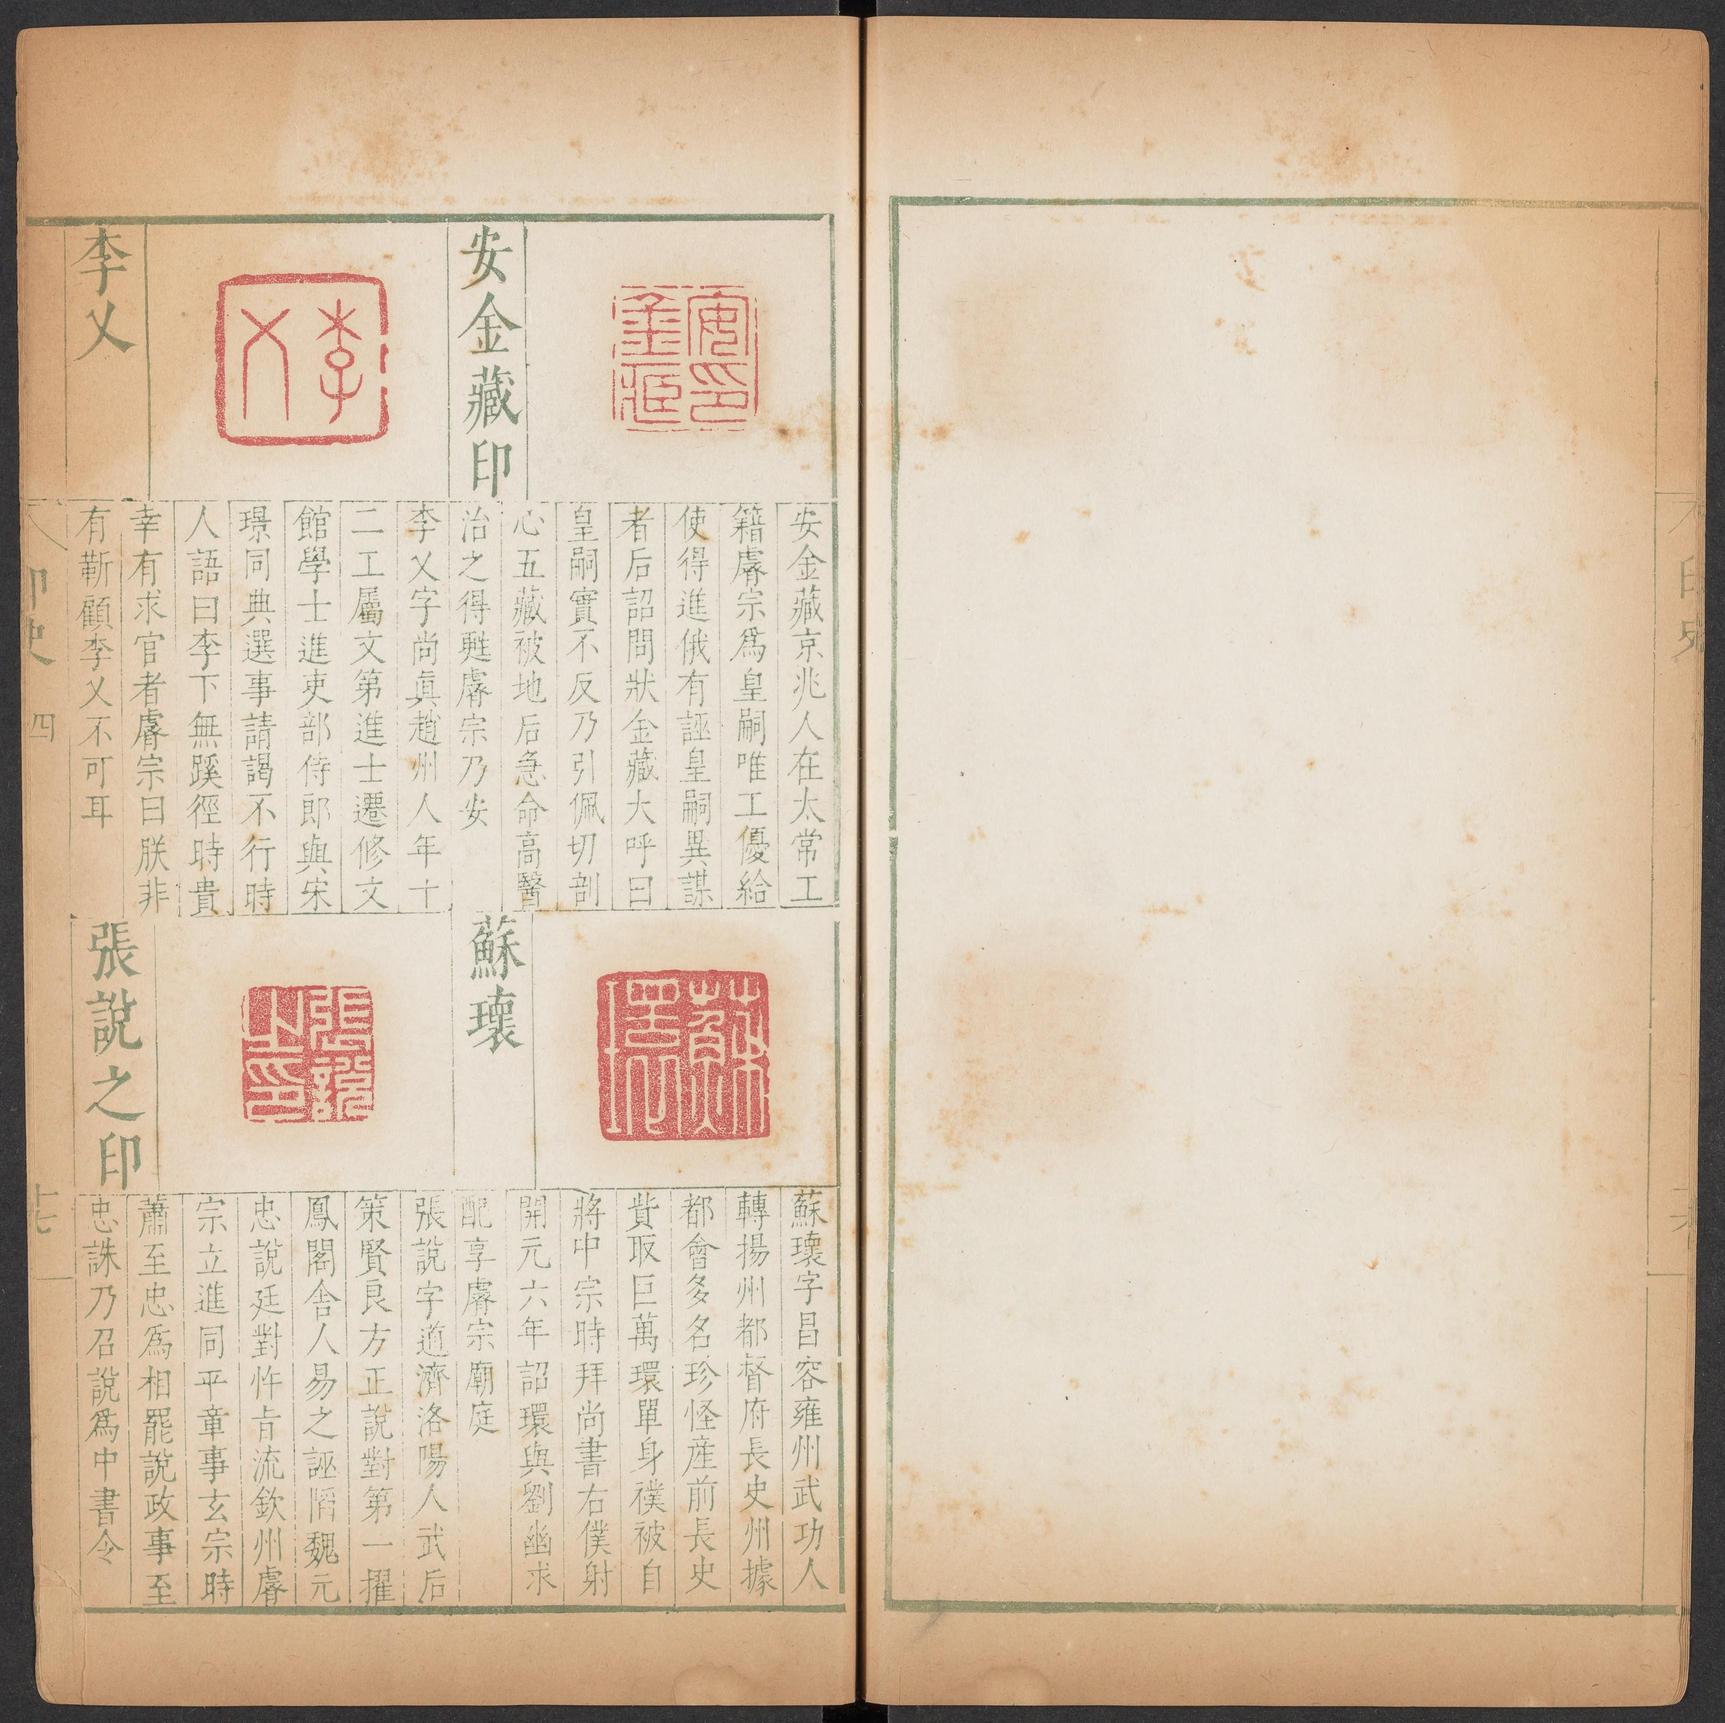 安金藏印
安金藏京兆人在太常工
籍睿宗爲皇嗣唯工優給
使得進俄有誣皇嗣異謀
者后詔問狀金藏大呼曰
皇嗣實不反乃引佩切剖
心五藏被地后急命高醫
治之得甦睿宗乃安
李乂
李乂字尚眞趙州人年十
二工屬文第進士遷修文
館學士進吏部侍郎與宋
璟同典選事請謁不行時
人語曰李下無蹊徑時貴
幸有求官者睿宗曰朕非
有靳顧李乂不可耳
蘇瓌
蘇瓌字昌容雍州武功人
轉揚州都督府長史州據
都會多名珍怪産前長史
貲取巨萬瓌單身襆被自
將中宗時拜尚書右僕射
開元六年詔瓌與劉幽求
配享睿宗廟庭
張說之印
張說字道濟洛陽人武后
策賢良方正說對第一擢
鳳閣舍人易之誣搆魏元
忠說廷對忤旨流欽州睿
宗立進同平章事玄宗時
蕭至忠爲相罷說政事至
忠誅乃召說爲中書令
印史
四
十七